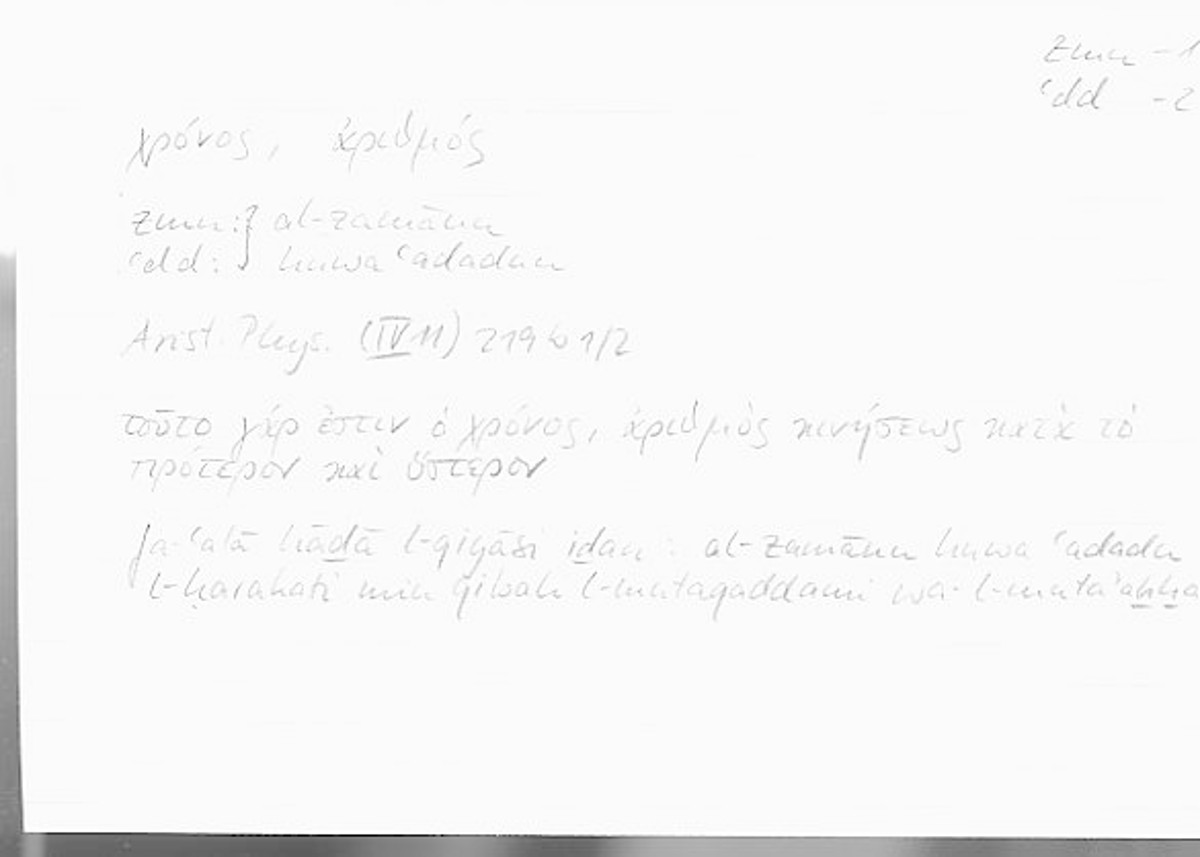 zmn – 1
ʿdd – 2
χρόνος, ἀριθμός
zmn: } al-zamānu
ʿdd: } huwa ʿadadun
Arist. Phys. (IV 11) 219 b 1/2
τοῦτο γάρ ἐστιν ὁ χρόνος, ἀριθμὸς κινήσεως κατὰ τὸ
πρότερον καὶ ὕστερον
fa-ʿalā hāḏā l-qiyāsi iḏan : al-zamānu huwa ʿadadu
l-ḥarakati min qibali l-mutaqaddami wa-l-mutaʾaḫḫa